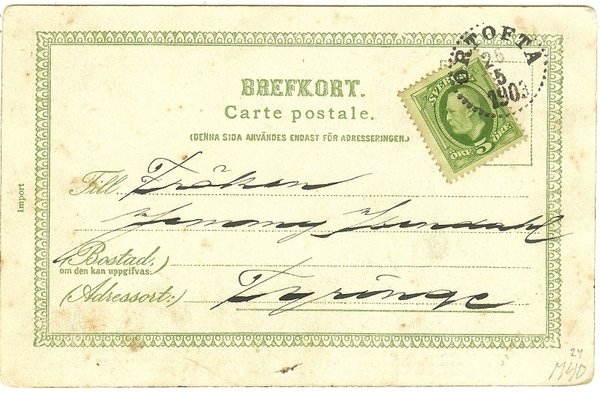 ÖRTOFTA
25
5
1903
SVERIGE
5
ÖRE ÖRE
BREFKORT.
Carte postale.
(DENNA SIDA ANVÄNDES ENDAST FÖR ADRESSERINGEN.)
Till Fröken
Jenny
Bostad,
om den kan uppgifvas:
(Adressort:) Tyringe
Import
24